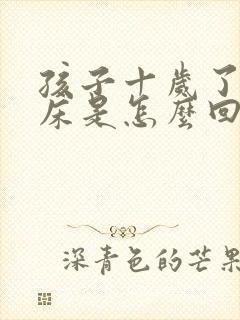 孩子十歲了
床是怎麼回
深青色的芒果